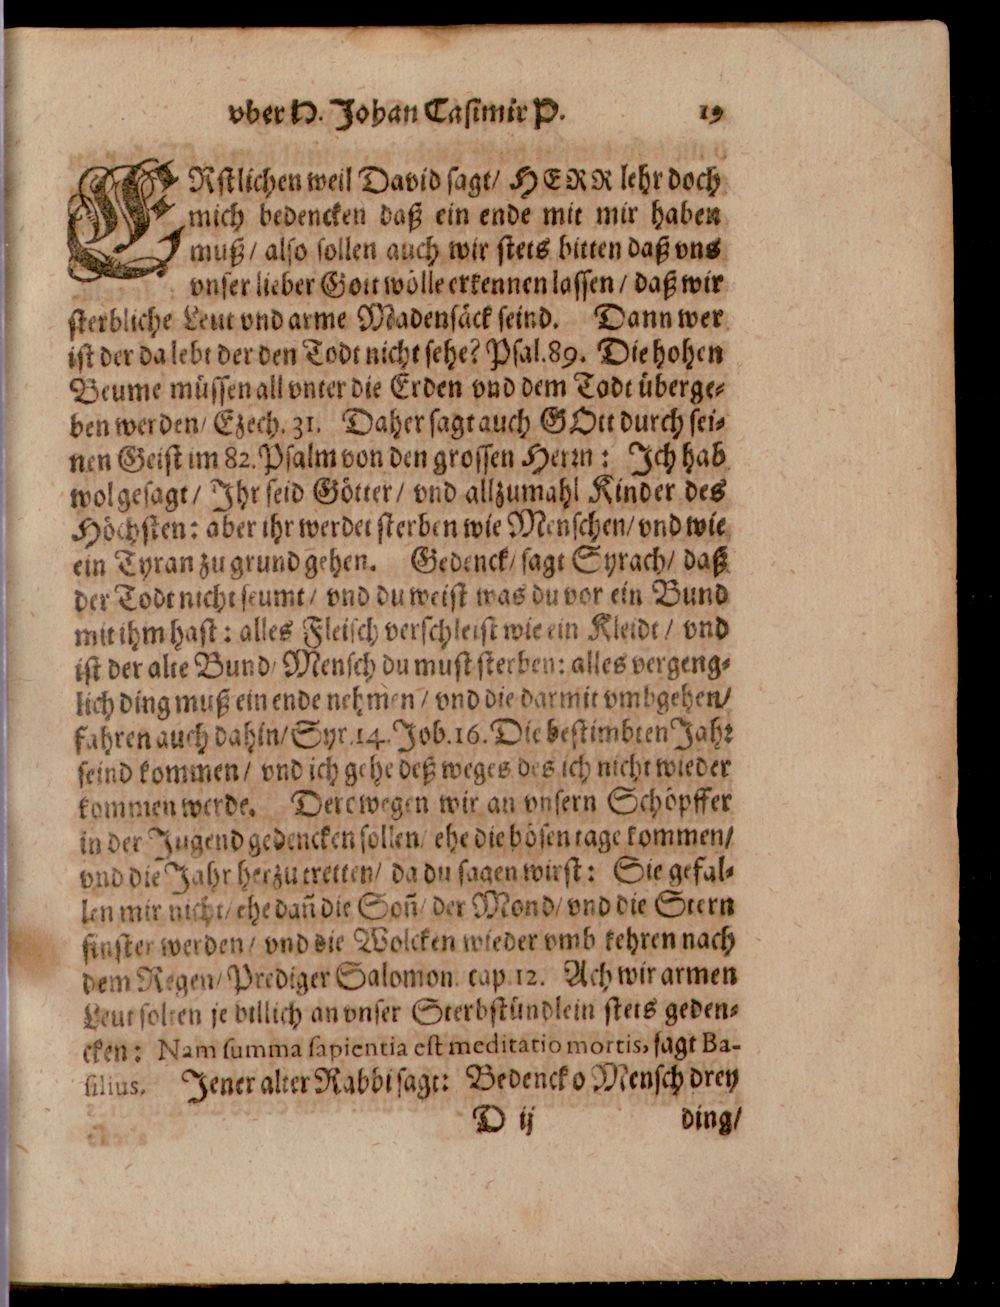 vber H. Johan Casimir P. 19
ERstlichen weil David sagt/ HERR lehr doch
mich bedencken daß ein ende mit mir haben
muß/ also sollen auch wir stets bitten daß vns
vnser lieber Gott wölle erkennen lassen/ daß wir
sterbliche Leut vnd arme Madensäck seind. Dann wer
ist der da lebt der den Todt nicht sehe? Psal. 89. Die hohen
Beume müssen all vnter die Erden vnd dem Todt überge-
ben werden/ Ezech. 31. Daher sagt auch GOtt durch sei-
nen Geist im 82. Psalm von den grossen Herrn: Ich hab
wol gesagt/ Ihr seid Götter/ vnd allzumahl Kinder des
Höchsten: aber ihr werdet sterben wie Menschen/ vnd wie
ein Tyran zu grund gehen. Gedenck/ sagt Syrach/ daß
der Todt nicht seumt/ vnd du weist was du vor ein Bund
mit ihm hast: alles Fleisch verschleist wie ein Kleidt/ vnd
ist der alte Bund/ Mensch du must sterben: alles vergeng-
lich ding muß ein ende nehmen/ vnd die darmit vmbgehen/
fahren auch dahin/ Syr. 14. Job. 16. Die bestimbten Jahr
seind kommen/ vnd ich gehe deß weges des ich nicht wieder
kommen werde. Derowegen wir an vnsern Schöpffer
in der Jugend gedencken sollen/ ehe die bösen tage kommen/
vnd die Jahr herzu tretten/ da du sagen wirst: Sie gefal-
len mir nicht/ ehe dañ die Soñ/ der Mond/ vnd die Stern
finster werden/ vnd die Wolcken wieder vmb kehren nach
dem Regen/ Prediger Salomon. cap. 12. Ach wir armen
Leut solten je billich an vnser Sterbstündlein stets geden-
cken: Nam summa sapientia est meditatio mortis, sagt Ba-
silius. Jener alter Rabbi sagt: Bedenck o Mensch drey
D ij ding/